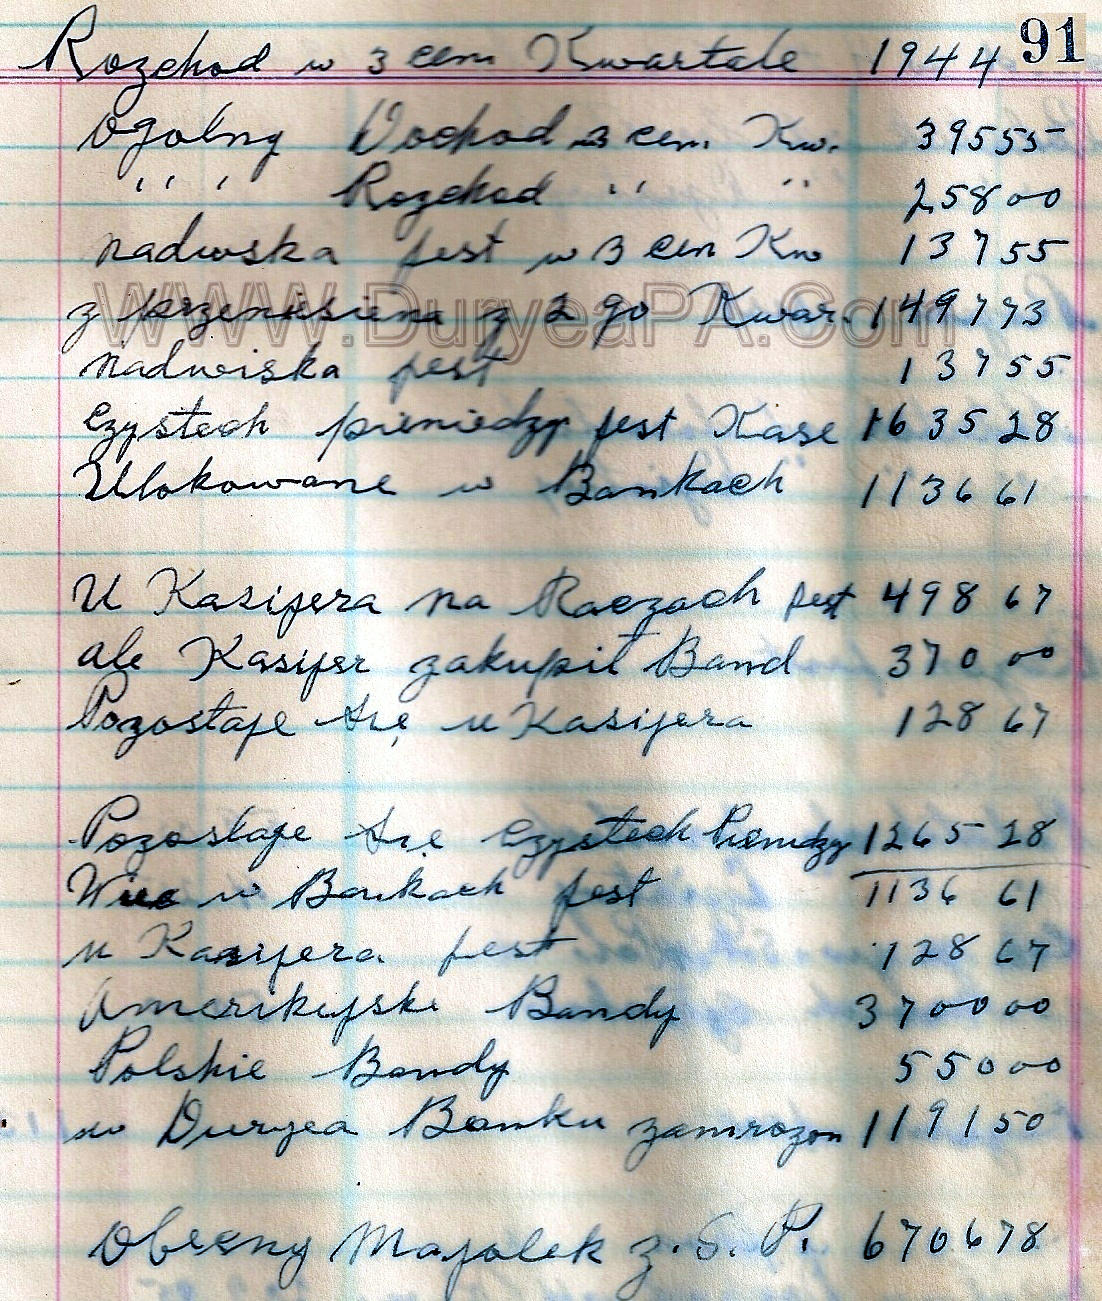 91
Rozchod w 3 cem Kwartale 1944
Ogolny Dochod 3 cem Kw. 395 55
" " " Rozchod " " 258 00
nadwska jest w 3 cem Kw 137 55
z przeniesiena z 2 go Kwar. 1497 73
nadwiska jest 137 55
Czystech pieniedzy jest Kase 1635 28
Ulokowane w Bankach 1136 61
U Kasijera na Raczach jest 498 67
ale Kasijer zakupił Band 370 00
Pozostaje się u Kasijera 128 67
Pozostaje się Czystech Piendzy 1265 28
Wiec w Bankach jest 1136 61
u Kasijera jest 128 67
Amerikejski Bandy 3700 00
Polskie Bondy 550 00
w Duryea Banku zamrozon 1191 50
Obecny Majolek z. S. P. 6706 78
WWW.DuryeaPA.Com